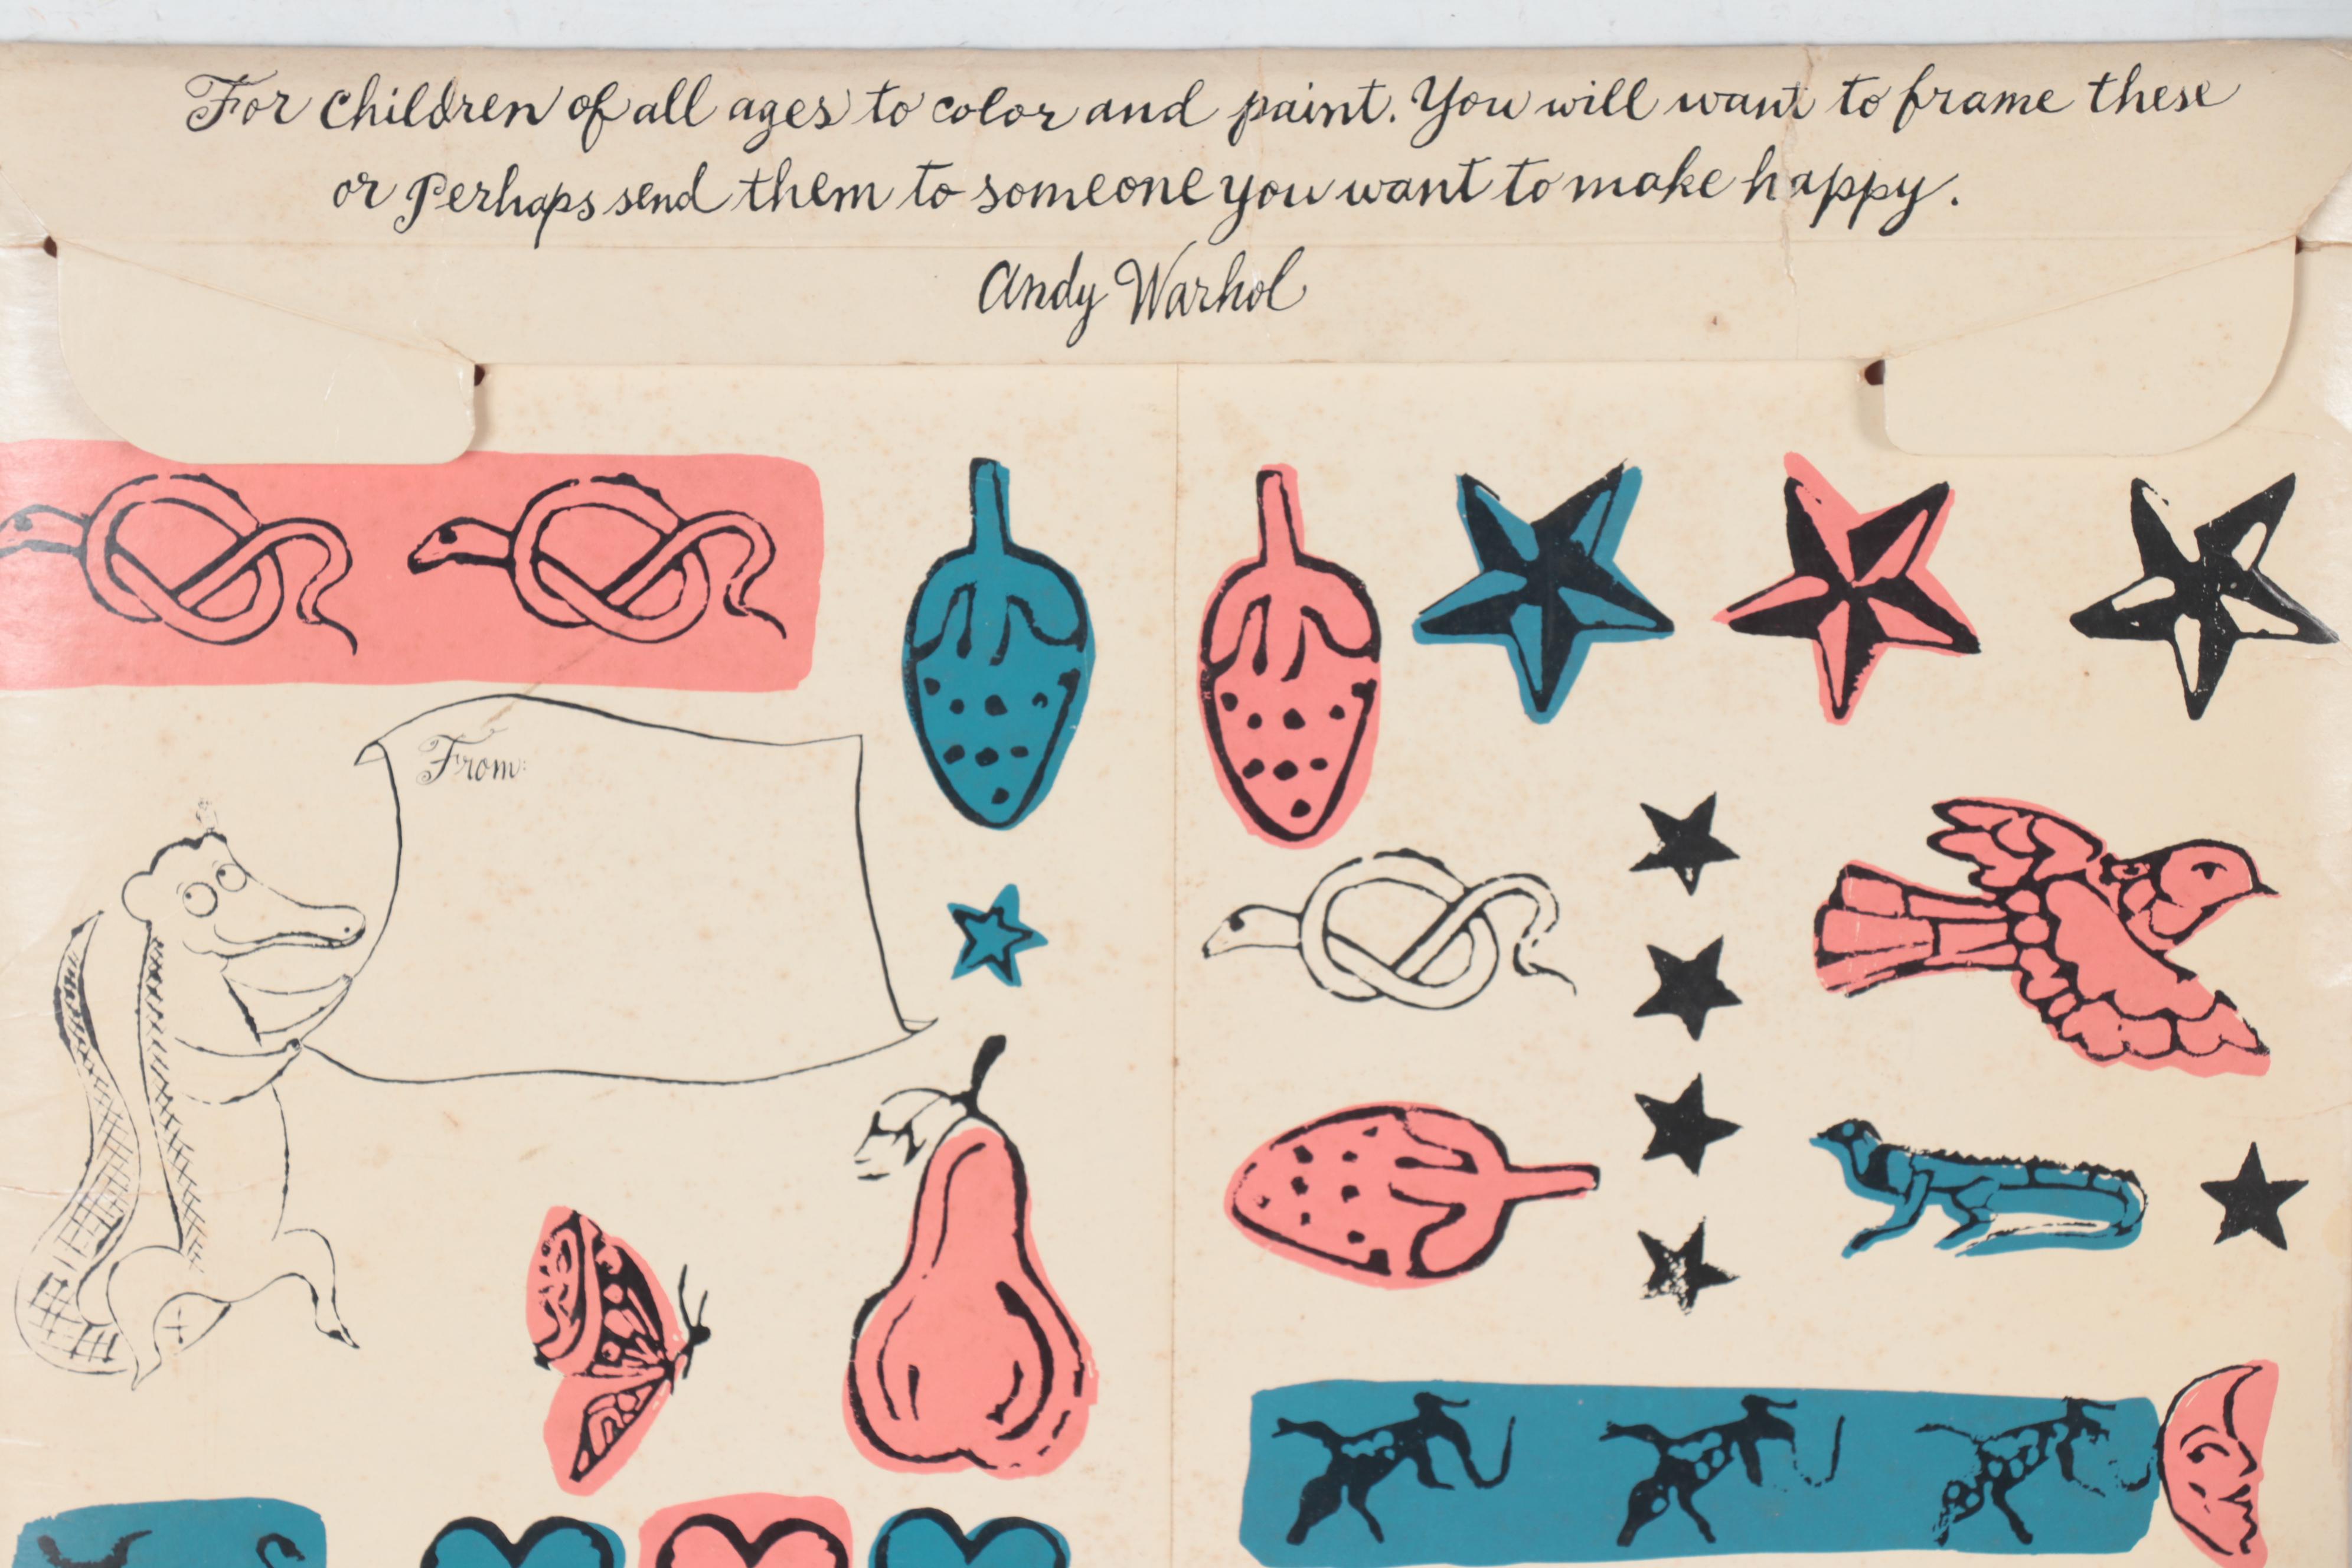 For children of all ages to color and paint. You will want to frame these
or Perhaps send them to someone you want to make happy.
Andy Warhol
From: